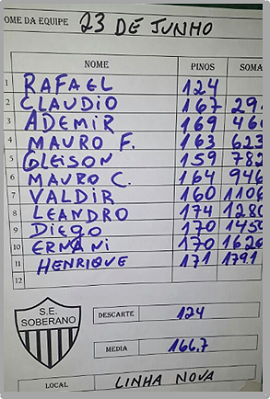 OME DA EQUIPE 23 DE JUNHO
NOME PINOS SOMA
1 RAFAEL 124
2 CLAUDIO 167 29
3 ADEMIR 169 460
4 MAURO F. 163 623
5 GLEISON 159 782
6 MAURO C. 164 946
7 VALDIR 160 1106
8 LEANDRO 174 1280
9 DIEGO 170 1450
10 ERNANI 170 1620
11 HENRIQUE 171 1791
12
S.E.
SOBERANO
DESCARTE 124
MEDIA 166.7
LOCAL LINHA NOVA